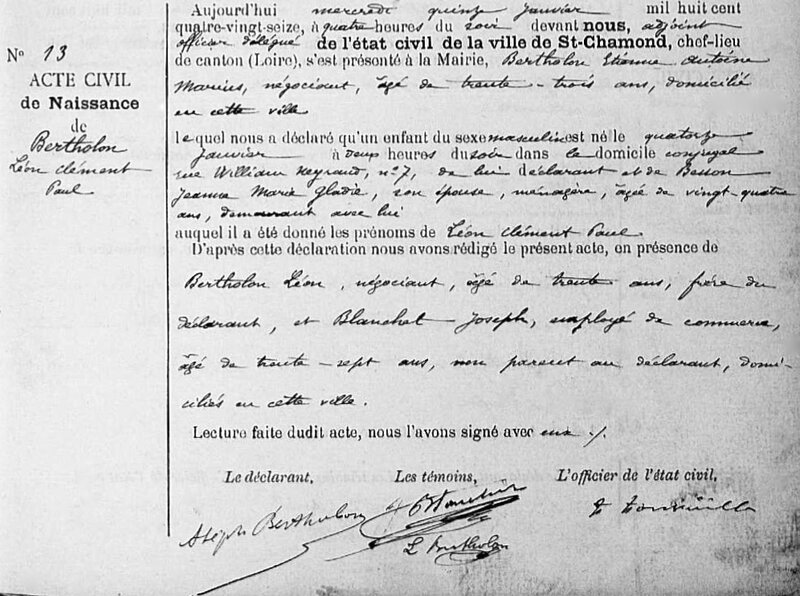 Aujourd'hui mercredi quinze janvier mil huit cent
quatre-vingt-seize, à quatre heures du soir devant nous, adjoint
officier délégué de l'état civil de la ville de St-Chamond, chef-lieu
de canton (Loire), s'est présenté à la Mairie, Bertholon Etienne Antoine
Marius, négociant, âgé de trente-trois ans, domicilié
en cette ville
No 13
ACTE CIVIL
de Naissance
de
Bertholon
Léon Clément
Paul
lequel nous a déclaré qu'un enfant du sexe masculin est né le quatorze
janvier à deux heures du soir dans le domicile conjugal
rue William Neyrand, no 7, de lui déclarant et de Besson
Jeanne Marie Gladie, son épouse, ménagère, âgée de vingt-quatre
ans, demeurant avec lui
auquel il a été donné les prénoms de Léon Clément Paul
D'après cette déclaration nous avons rédigé le présent acte, en présence de
Bertholon Léon, négociant, âgé de trente ans, frère du
déclarant, et Blanchet Joseph, employé de commerce,
âgé de trente-sept ans, non parent au déclarant, domi-
ciliés en cette ville.
Lecture faite dudit acte, nous l'avons signé avec eux ./.
Le déclarant, Les témoins, L'officier de l'état civil,
Bertholon
L Bertholon